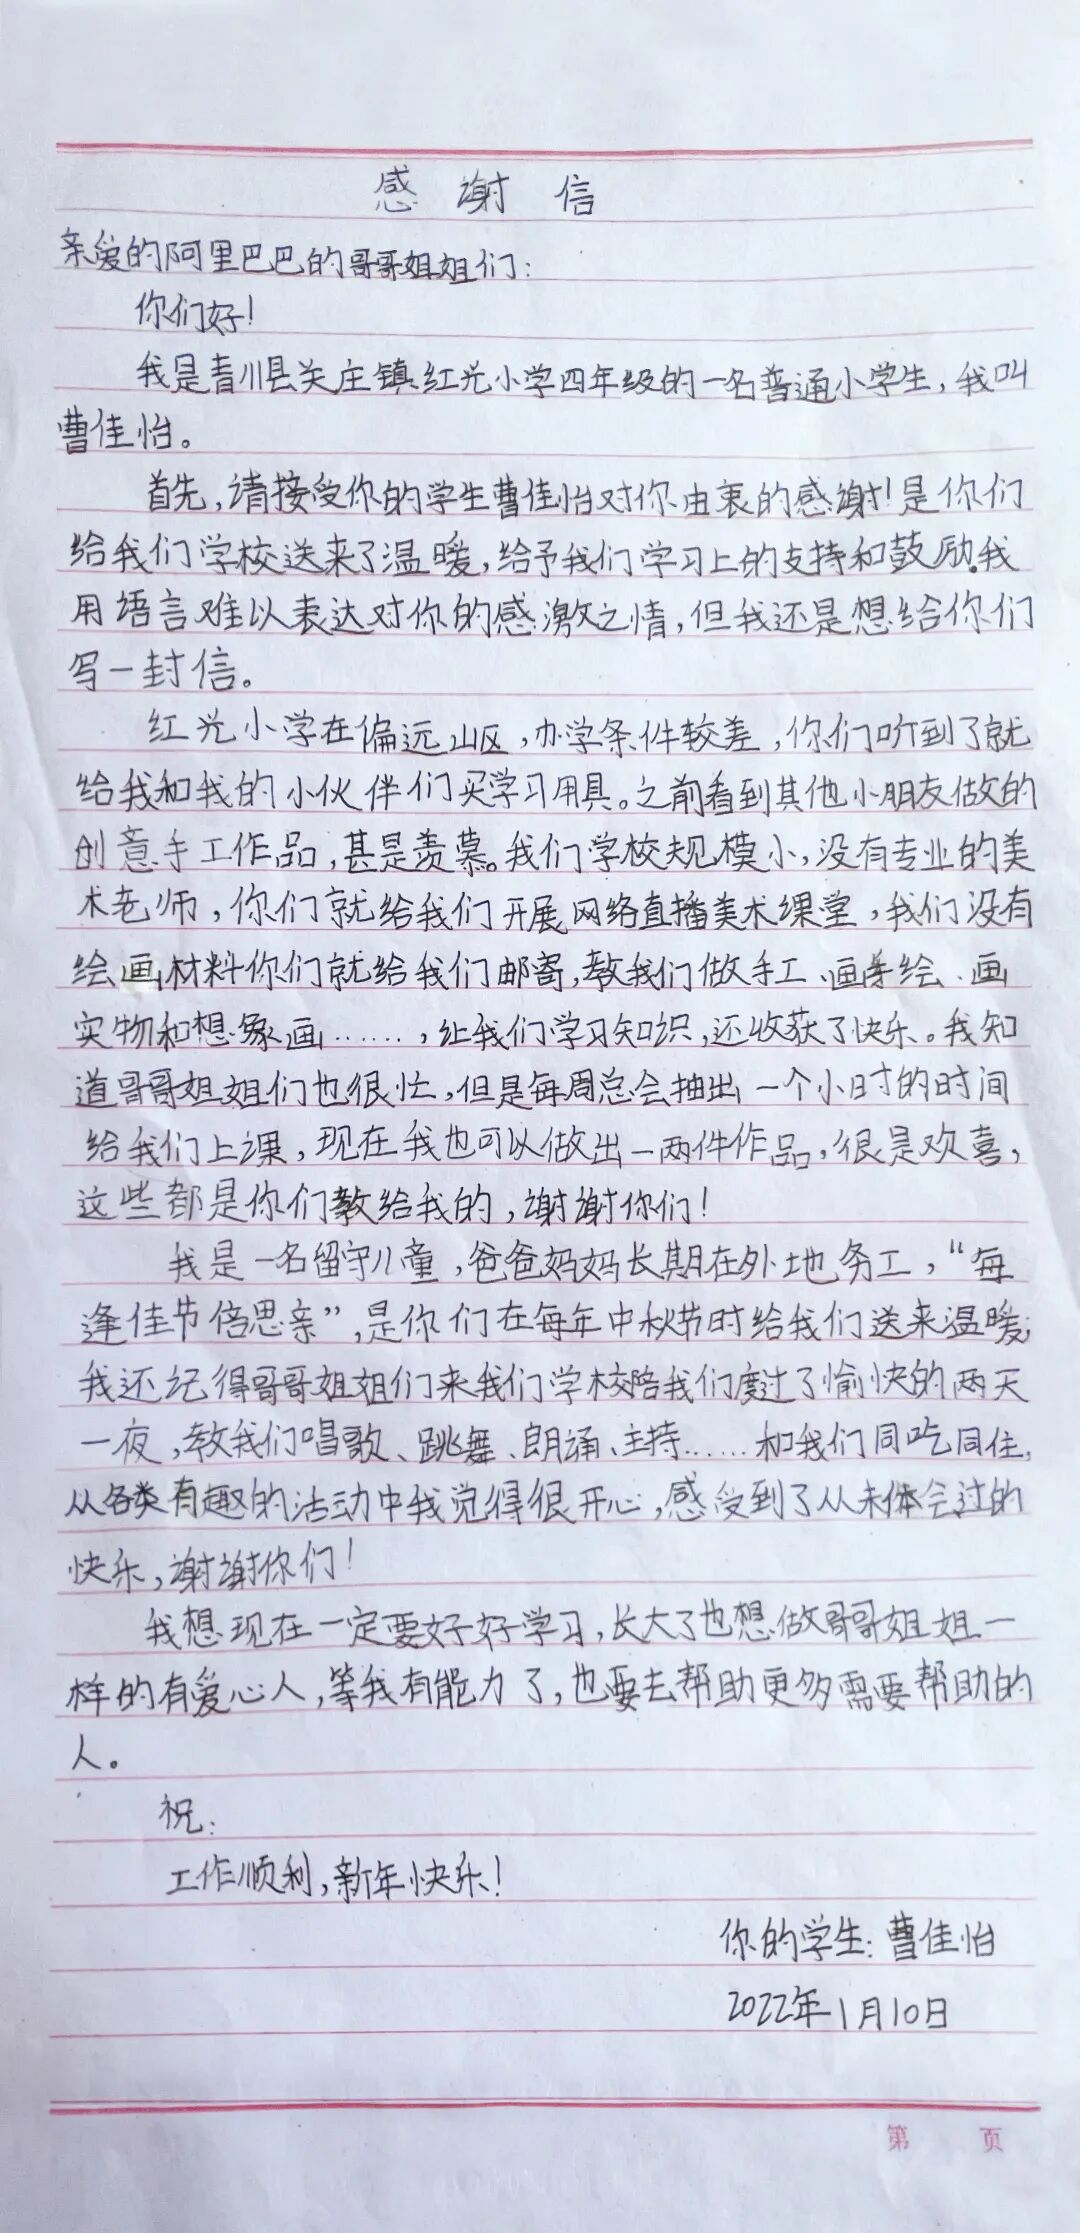 感谢信
亲爱的阿里巴巴的哥哥姐姐们：
你们好！
我是青川县关庄镇红光小学四年级的一名普通小学生，我叫
曹佳怡。
首先，请接受你的学生曹佳怡对你由衷的感谢！是你们
给我们学校送来了温暖，给予我们学习上的支持和鼓励。我
用语言难以表达对你的感激之情，但我还是想给你们
写一封信。
红光小学在偏远山区，办学条件较差，你们听到了就
给我和我的小伙伴们买学习用具。之前看到其他小朋友做的
创意手工作品，甚是羡慕。我们学校规模小，没有专业的美
术老师，你们就给我们开展网络直播美术课堂，我们没有
绘画材料你们就给我们邮寄，教我们做手工、画手绘、画
实物和想象画……，让我们学习知识，还收获了快乐。我知
道哥哥姐姐们也很忙，但是每周总会抽出一个小时的时间
给我们上课，现在我也可以做出一两件作品，很是欢喜，
这些都是你们教给我的，谢谢你们！
我是一名留守儿童，爸爸妈妈长期在外地务工，“每
逢佳节倍思亲”，是你们在每年中秋节时给我们送来温暖，
我还记得哥哥姐姐们来我们学校陪我们度过了愉快的两天
一夜，教我们唱歌、跳舞、朗诵、主持……和我们同吃同住，
从各类有趣的活动中我觉得很开心，感受到了从未体会过的
快乐，谢谢你们！
我想现在一定要好好学习，长大了也想做哥哥姐姐一
样的有爱心人，等我有能力了，也要去帮助更多需要帮助的
人。
祝：
工作顺利，新年快乐！
你的学生：曹佳怡
2022年1月10日
第 页